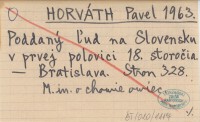 HORVÁTH Pavel 1963.
Poddaný ľud na Slovensku
v prvej polovici 18. storočia
— Bratislava. Stron 328.
M. in. o chowie owiec